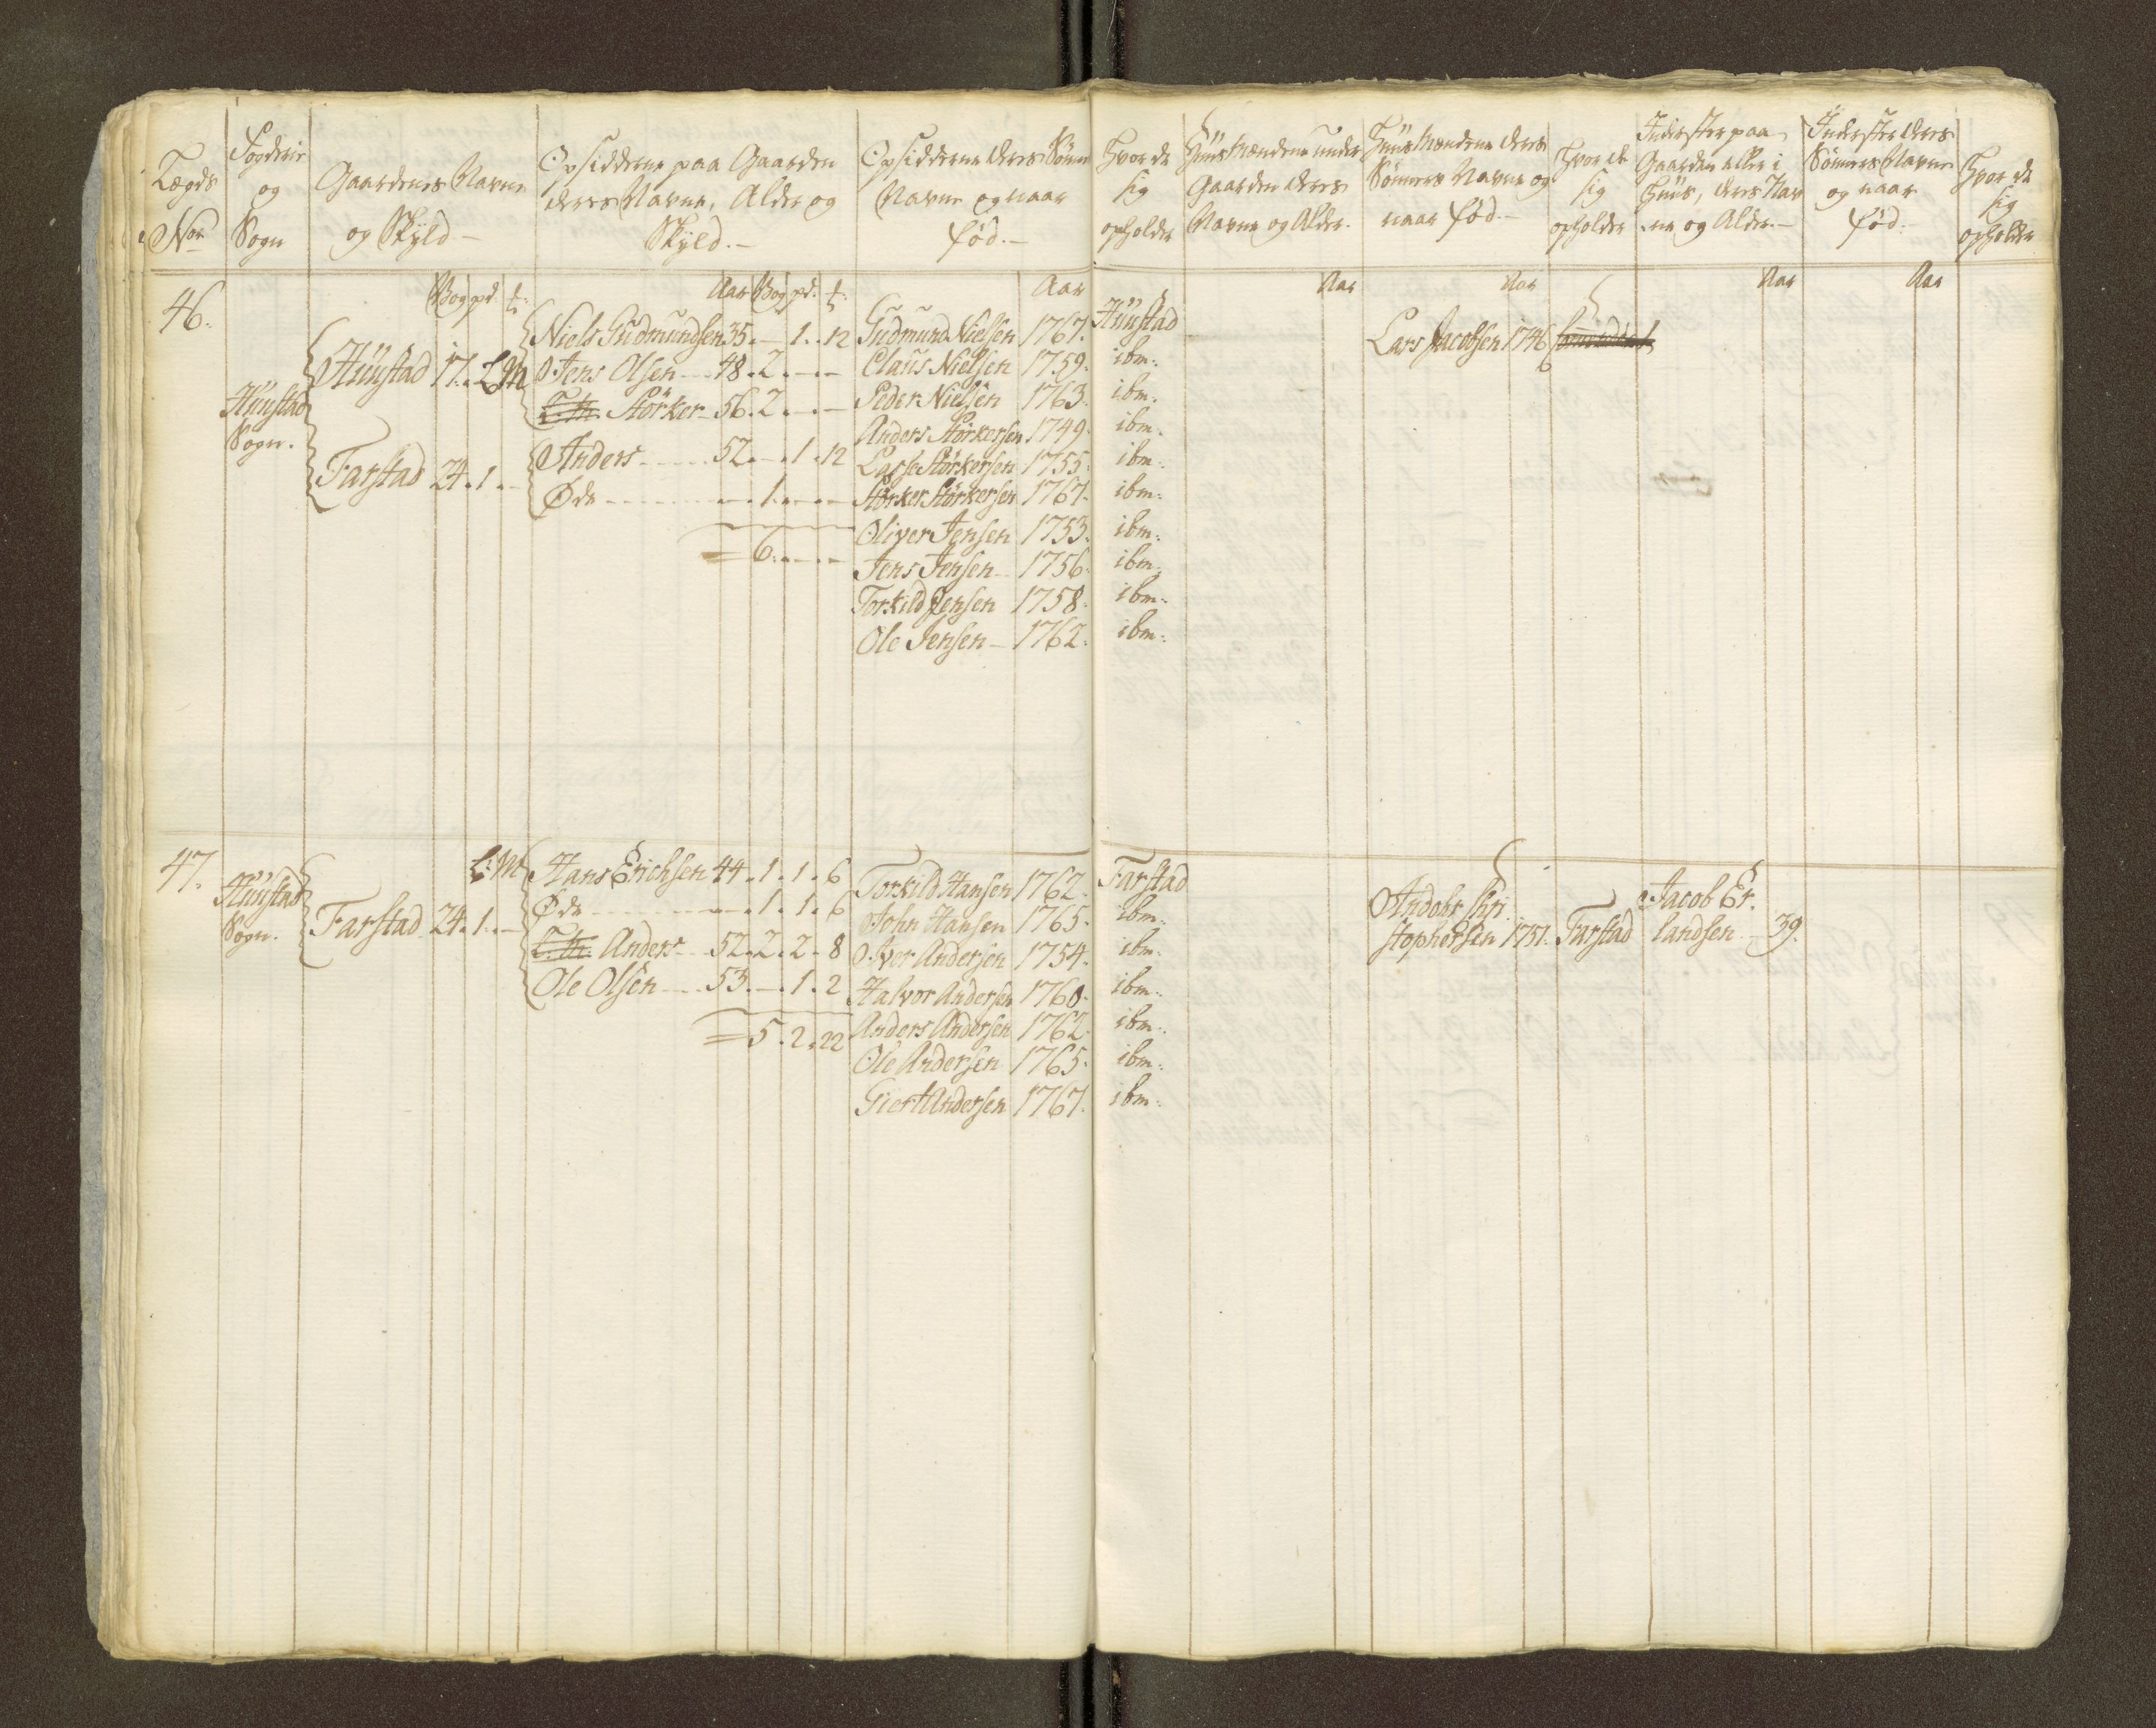 Lægds
No
Fogderie
og
Sogn
Gaardenes Navne
og Skyld.
Opsidderne paa Gaarden
deres Navne, Alder og
Skyld.
Opsidderne deres Sønners
Navne og naar
fød.
Hvor de
sig
opholder
Huusmændene under
Gaarden deres
Navne og Alder.
Huusmændene deres
Sønners Navne og
naar fød.
Hvor de
sig
opholder
Inderster paa
Gaarden eller i
Huus, deres Nav
ne og Alder.
Inderster deres
Sønners Navne
og naar
fød.
Hvor de
sig
opholder
Vog pd.
Aar Vog pd.
Aar
Aar
Aar
Aar
Aar
46.
Huustad
Sogn.
Huustad 17. L M
Farstad 24. 1. -
Niels Gudmundsen 35. - 1. 12
Jens Olsen 48. 2. - -
Størker 56. 2. - -
Anders 52. - 1. 12
Øde - 1. - -
= 6. - -
Gudmund Nielsen 1767. Huustad
Claus Nielsen 1759. ibm:
Peder Nielsen 1763. ibm:
Anders Størkersen 1749. ibm:
Lasse Størkersen 1755. ibm:
Størker Størkersen 1767. ibm:
Oliver Jensen 1753. ibm:
Jens Jensen 1756. ibm:
Torkild Jensen 1758. ibm:
Ole Jensen 1762. ibm:
Lars Jacobsen 1746
47.
Huustad
Sogn.
L: M
Farstad 24. 1. -
Hans Erichsen 44. 1. 1. 6
Øde - 1. 1. 6
Anders 52. 2. 2. 8
Ole Olsen 53. - 1. 2
= 5. 2. 22
Torkild Hansen 1762. Farstad
John Hansen 1765. ibm:
Iver Andersen 1754. ibm:
Halvor Andersen 1760. ibm:
Anders Andersen 1762. ibm:
Ole Andersen 1765. ibm:
Giert Andersen 1767. ibm:
Andobr Chri
stophersen 1751. Farstad
Jacob Er.
landsen 39.